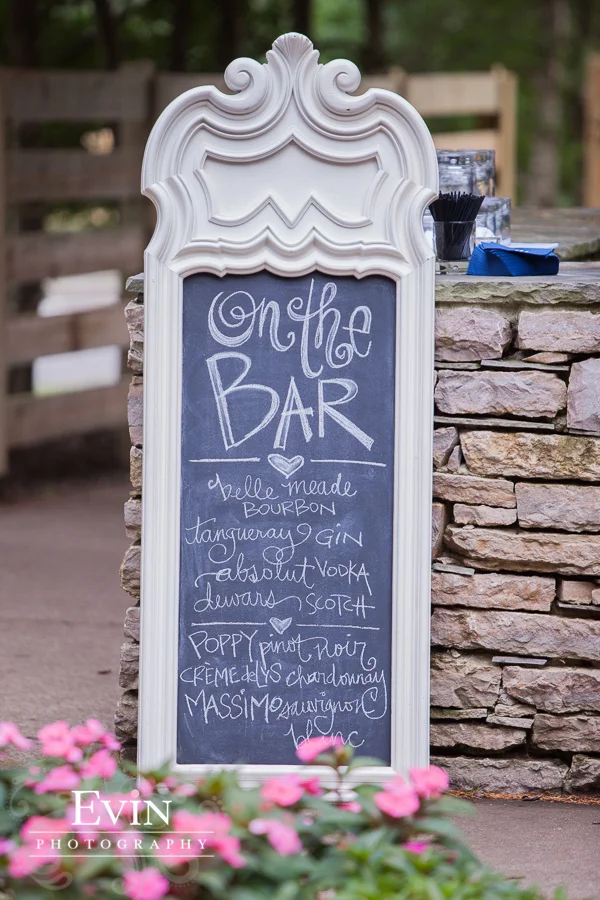 On the
BAR
belle meade
BOURBON
tangueray GIN
absolut VODKA
dewars SCOTCH
POPPY pinot noir
CRÈME de LYS chardonnay
MASSIMO sauvignon
blanc
EVIN
PHOTOGRAPHY